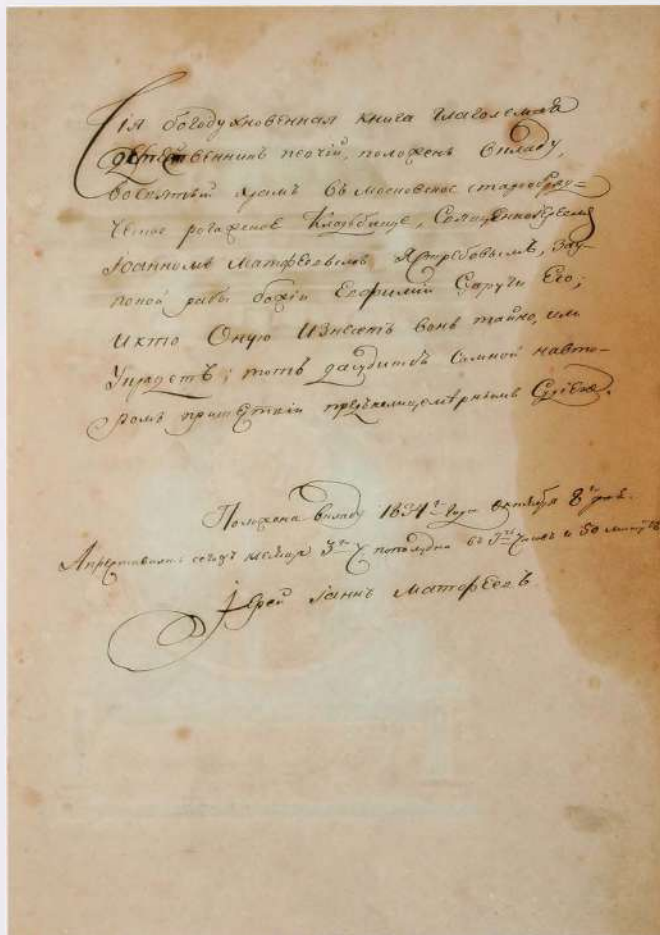 Сія богодухновенная книга глаголемая
певчій, положенъ вкладу,
восвятый храмъ въ московское старообряд=
ческое рогожское Кладбище, Священноіереемъ
Іоанномъ Матфеевымъ Ястребовымъ, заУ=
покой рабы божіи Евфиміи Супруги Его;
И кто Оную Изнесетъ вонъ тайно, или
Украдетъ; тотъ дасудится Самной навто=
ромъ пришествіи предънелицемѣрнымъ Судіею.
Положена вкладу 1834г Года октября 8г дня.
Апреставилась сегожъ месяца 3го Ч пополудни въ Часовъ и 50 минутъ
Іерей Іаннъ Матфеевъ